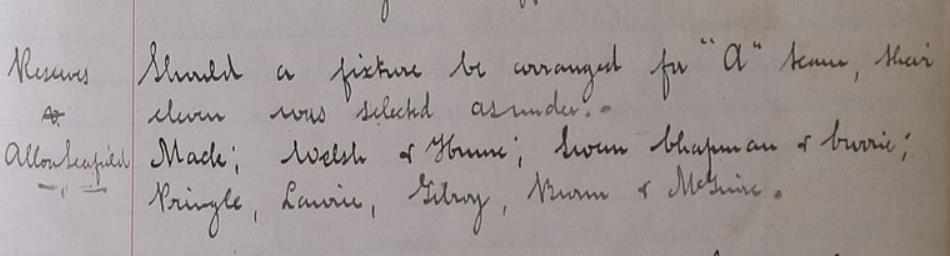 Reserves
Should a fixture be arranged for "A" team, their
eleven was selected as under. -
Mack; Welsh & Hume; Swan Chapman & Currie;
Pringle, Laurie, Gilroy, Burn & McGuire.